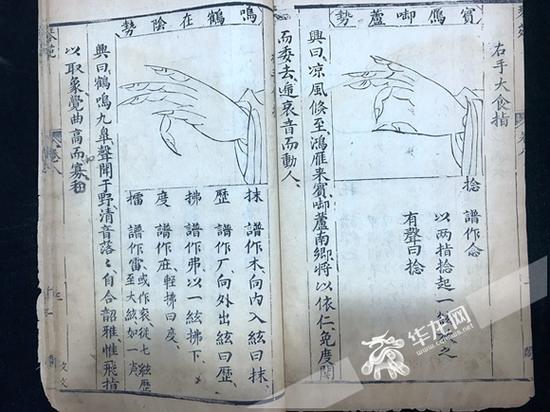 右手大食指
賓鴈啣蘆勢
捻 譜作念
以两指捻起一 之
有聲曰捻
興曰凉風倏至鴻雁来賓啣蘆南鄉將以依仁免度關
而委去遞哀音而動人
鳴鶴在陰勢
抹 譜作木向内入絃曰抹
歷 譜作厂向外出絃曰歷
拂 譜作弗以一絃拂下
度 譜作庄輕拂曰度
擂 譜作雷 或作衮從七絃歷
至大絃如一声
興曰鶴鳴九皐聲聞于野清音落々自合韶雅惟飛指
以取象覺曲高而寡和
卷八
华龙网